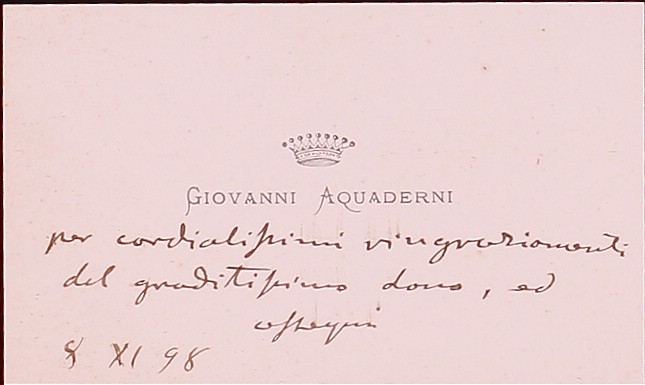 GIOVANNI AQUADERNI
per cordialissimi ringraziamenti
del graditissimo dono, ed
ossequi
8 XI 98